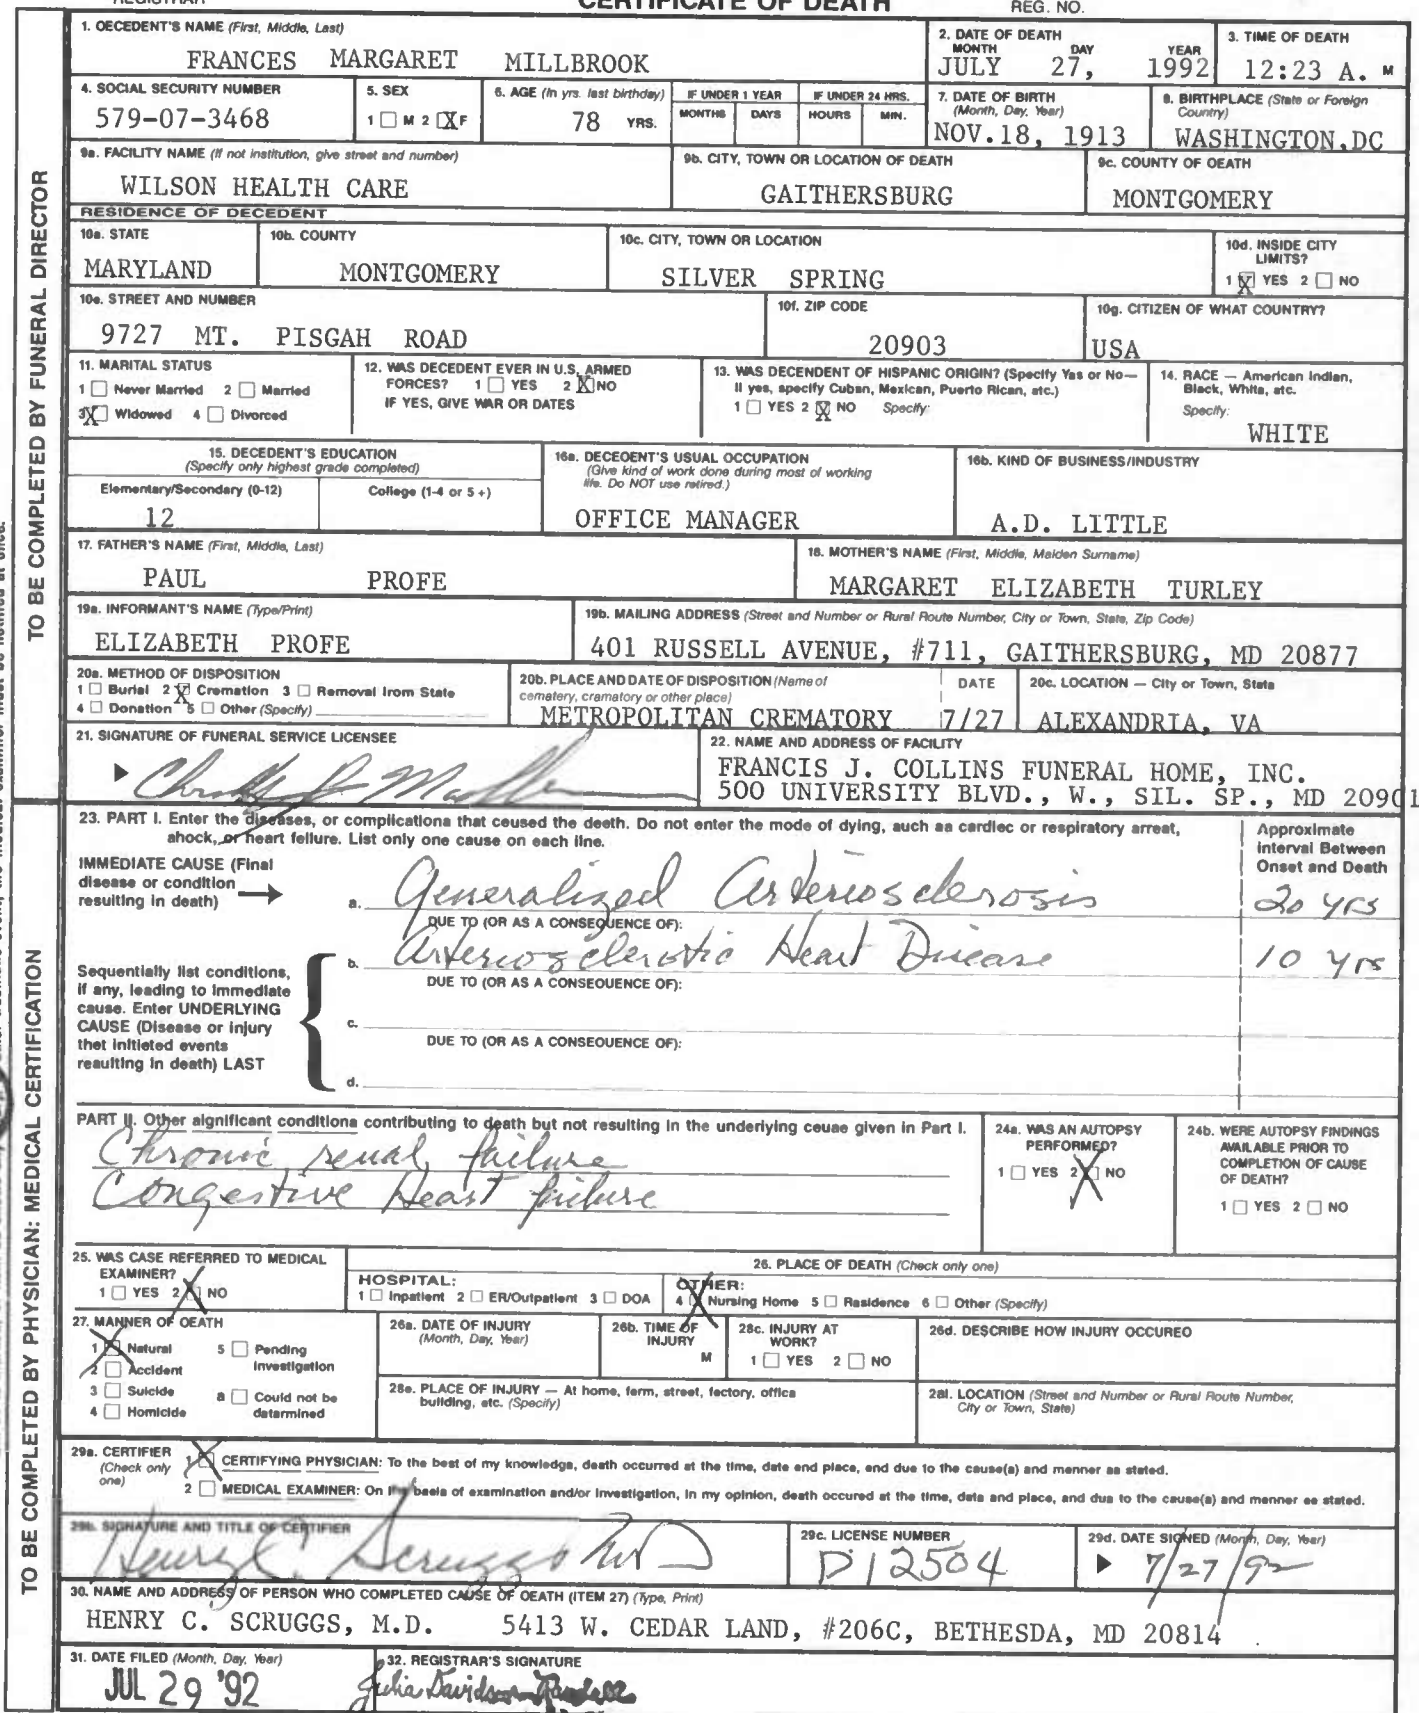 CERTIFICATE OF DEATH
REG. NO.
1. DECEDENT'S NAME (First, Middle, Last)
FRANCES MARGARET MILLBROOK
2. DATE OF DEATH
MONTH DAY YEAR
JULY 27, 1992
3. TIME OF DEATH
12:23 A. M
4. SOCIAL SECURITY NUMBER
579-07-3468
5. SEX
1 ☐ M 2 ☒ F
6. AGE (In yrs. last birthday)
78 YRS.
IF UNDER 1 YEAR
MONTHS DAYS
IF UNDER 24 HRS.
HOURS MIN.
7. DATE OF BIRTH
(Month, Day, Year)
NOV.18, 1913
8. BIRTHPLACE (State or Foreign
Country)
WASHINGTON,DC
9a. FACILITY NAME (If not institution, give street and number)
WILSON HEALTH CARE
9b. CITY, TOWN OR LOCATION OF DEATH
GAITHERSBURG
9c. COUNTY OF DEATH
MONTGOMERY
RESIDENCE OF DECEDENT
10a. STATE
MARYLAND
10b. COUNTY
MONTGOMERY
10c. CITY, TOWN OR LOCATION
SILVER SPRING
10d. INSIDE CITY
LIMITS?
1 ☒ YES 2 ☐ NO
10e. STREET AND NUMBER
9727 MT. PISGAH ROAD
10f. ZIP CODE
20903
10g. CITIZEN OF WHAT COUNTRY?
USA
11. MARITAL STATUS
1 ☐ Never Married 2 ☐ Married
3 ☒ Widowed 4 ☐ Divorced
12. WAS DECEDENT EVER IN U.S. ARMED
FORCES? 1 ☐ YES 2 ☒ NO
IF YES, GIVE WAR OR DATES
13. WAS DECENDENT OF HISPANIC ORIGIN? (Specify Yes or No—
If yes, specify Cuban, Mexican, Puerto Rican, etc.)
1 ☐ YES 2 ☒ NO Specify:
14. RACE — American Indian,
Black, White, etc.
Specify:
WHITE
15. DECEDENT'S EDUCATION
(Specify only highest grade completed)
Elementary/Secondary (0-12) College (1-4 or 5+)
12
16a. DECEDENT'S USUAL OCCUPATION
(Give kind of work done during most of working
life. Do NOT use retired.)
OFFICE MANAGER
16b. KIND OF BUSINESS/INDUSTRY
A.D. LITTLE
17. FATHER'S NAME (First, Middle, Last)
PAUL PROFE
18. MOTHER'S NAME (First, Middle, Maiden Surname)
MARGARET ELIZABETH TURLEY
19a. INFORMANT'S NAME (Type/Print)
ELIZABETH PROFE
19b. MAILING ADDRESS (Street and Number or Rural Route Number, City or Town, State, Zip Code)
401 RUSSELL AVENUE, #711, GAITHERSBURG, MD 20877
20a. METHOD OF DISPOSITION
1 ☐ Burial 2 ☒ Cremation 3 ☐ Removal from State
4 ☐ Donation 5 ☐ Other (Specify)
20b. PLACE AND DATE OF DISPOSITION (Name of
cemetery, crematory or other place)
METROPOLITAN CREMATORY
DATE
7/27
20c. LOCATION — City or Town, State
ALEXANDRIA, VA
21. SIGNATURE OF FUNERAL SERVICE LICENSEE
22. NAME AND ADDRESS OF FACILITY
FRANCIS J. COLLINS FUNERAL HOME, INC.
500 UNIVERSITY BLVD., W., SIL. SP., MD 20901
TO BE COMPLETED BY FUNERAL DIRECTOR
23. PART I. Enter the diseases, or complications that caused the death. Do not enter the mode of dying, such as cardiac or respiratory arrest,
shock, or heart failure. List only one cause on each line.
Approximate
Interval Between
Onset and Death
IMMEDIATE CAUSE (Final
disease or condition
resulting in death)
a. Generalized Arteriosclerosis 20 yrs
DUE TO (OR AS A CONSEQUENCE OF):
b. Arteriosclerotic Heart Disease 10 yrs
DUE TO (OR AS A CONSEQUENCE OF):
c.
DUE TO (OR AS A CONSEQUENCE OF):
d.
Sequentially list conditions,
if any, leading to immediate
cause. Enter UNDERLYING
CAUSE (Disease or injury
that initiated events
resulting in death) LAST
PART II. Other significant conditions contributing to death but not resulting in the underlying cause given in Part I.
Chronic renal failure
Congestive Heart failure
24a. WAS AN AUTOPSY
PERFORMED?
1 ☐ YES 2 ☒ NO
24b. WERE AUTOPSY FINDINGS
AVAILABLE PRIOR TO
COMPLETION OF CAUSE
OF DEATH?
1 ☐ YES 2 ☐ NO
25. WAS CASE REFERRED TO MEDICAL
EXAMINER?
1 ☐ YES 2 ☒ NO
26. PLACE OF DEATH (Check only one)
HOSPITAL:
1 ☐ Inpatient 2 ☐ ER/Outpatient 3 ☐ DOA
OTHER:
4 ☒ Nursing Home 5 ☐ Residence 6 ☐ Other (Specify)
27. MANNER OF DEATH
1 ☒ Natural 5 ☐ Pending
Investigation
2 ☐ Accident
3 ☐ Suicide 6 ☐ Could not be
determined
4 ☐ Homicide
28a. DATE OF INJURY
(Month, Day, Year)
28b. TIME OF
INJURY
M
28c. INJURY AT
WORK?
1 ☐ YES 2 ☐ NO
28d. DESCRIBE HOW INJURY OCCURED
28e. PLACE OF INJURY — At home, farm, street, factory, office
building, etc. (Specify)
28f. LOCATION (Street and Number or Rural Route Number,
City or Town, State)
29a. CERTIFIER
(Check only
one)
1 ☒ CERTIFYING PHYSICIAN: To the best of my knowledge, death occurred at the time, date and place, and due to the cause(s) and manner as stated.
2 ☐ MEDICAL EXAMINER: On the basis of examination and/or investigation, in my opinion, death occured at the time, data and place, and due to the cause(s) and manner as stated.
29b. SIGNATURE AND TITLE OF CERTIFIER
Henry C. Scruggs MD
29c. LICENSE NUMBER
D12504
29d. DATE SIGNED (Month, Day, Year)
7/27/92
30. NAME AND ADDRESS OF PERSON WHO COMPLETED CAUSE OF DEATH (ITEM 27) (Type, Print)
HENRY C. SCRUGGS, M.D. 5413 W. CEDAR LAND, #206C, BETHESDA, MD 20814
31. DATE FILED (Month, Day, Year)
JUL 29 '92
32. REGISTRAR'S SIGNATURE
Julia Davidson-Randall
TO BE COMPLETED BY PHYSICIAN: MEDICAL CERTIFICATION